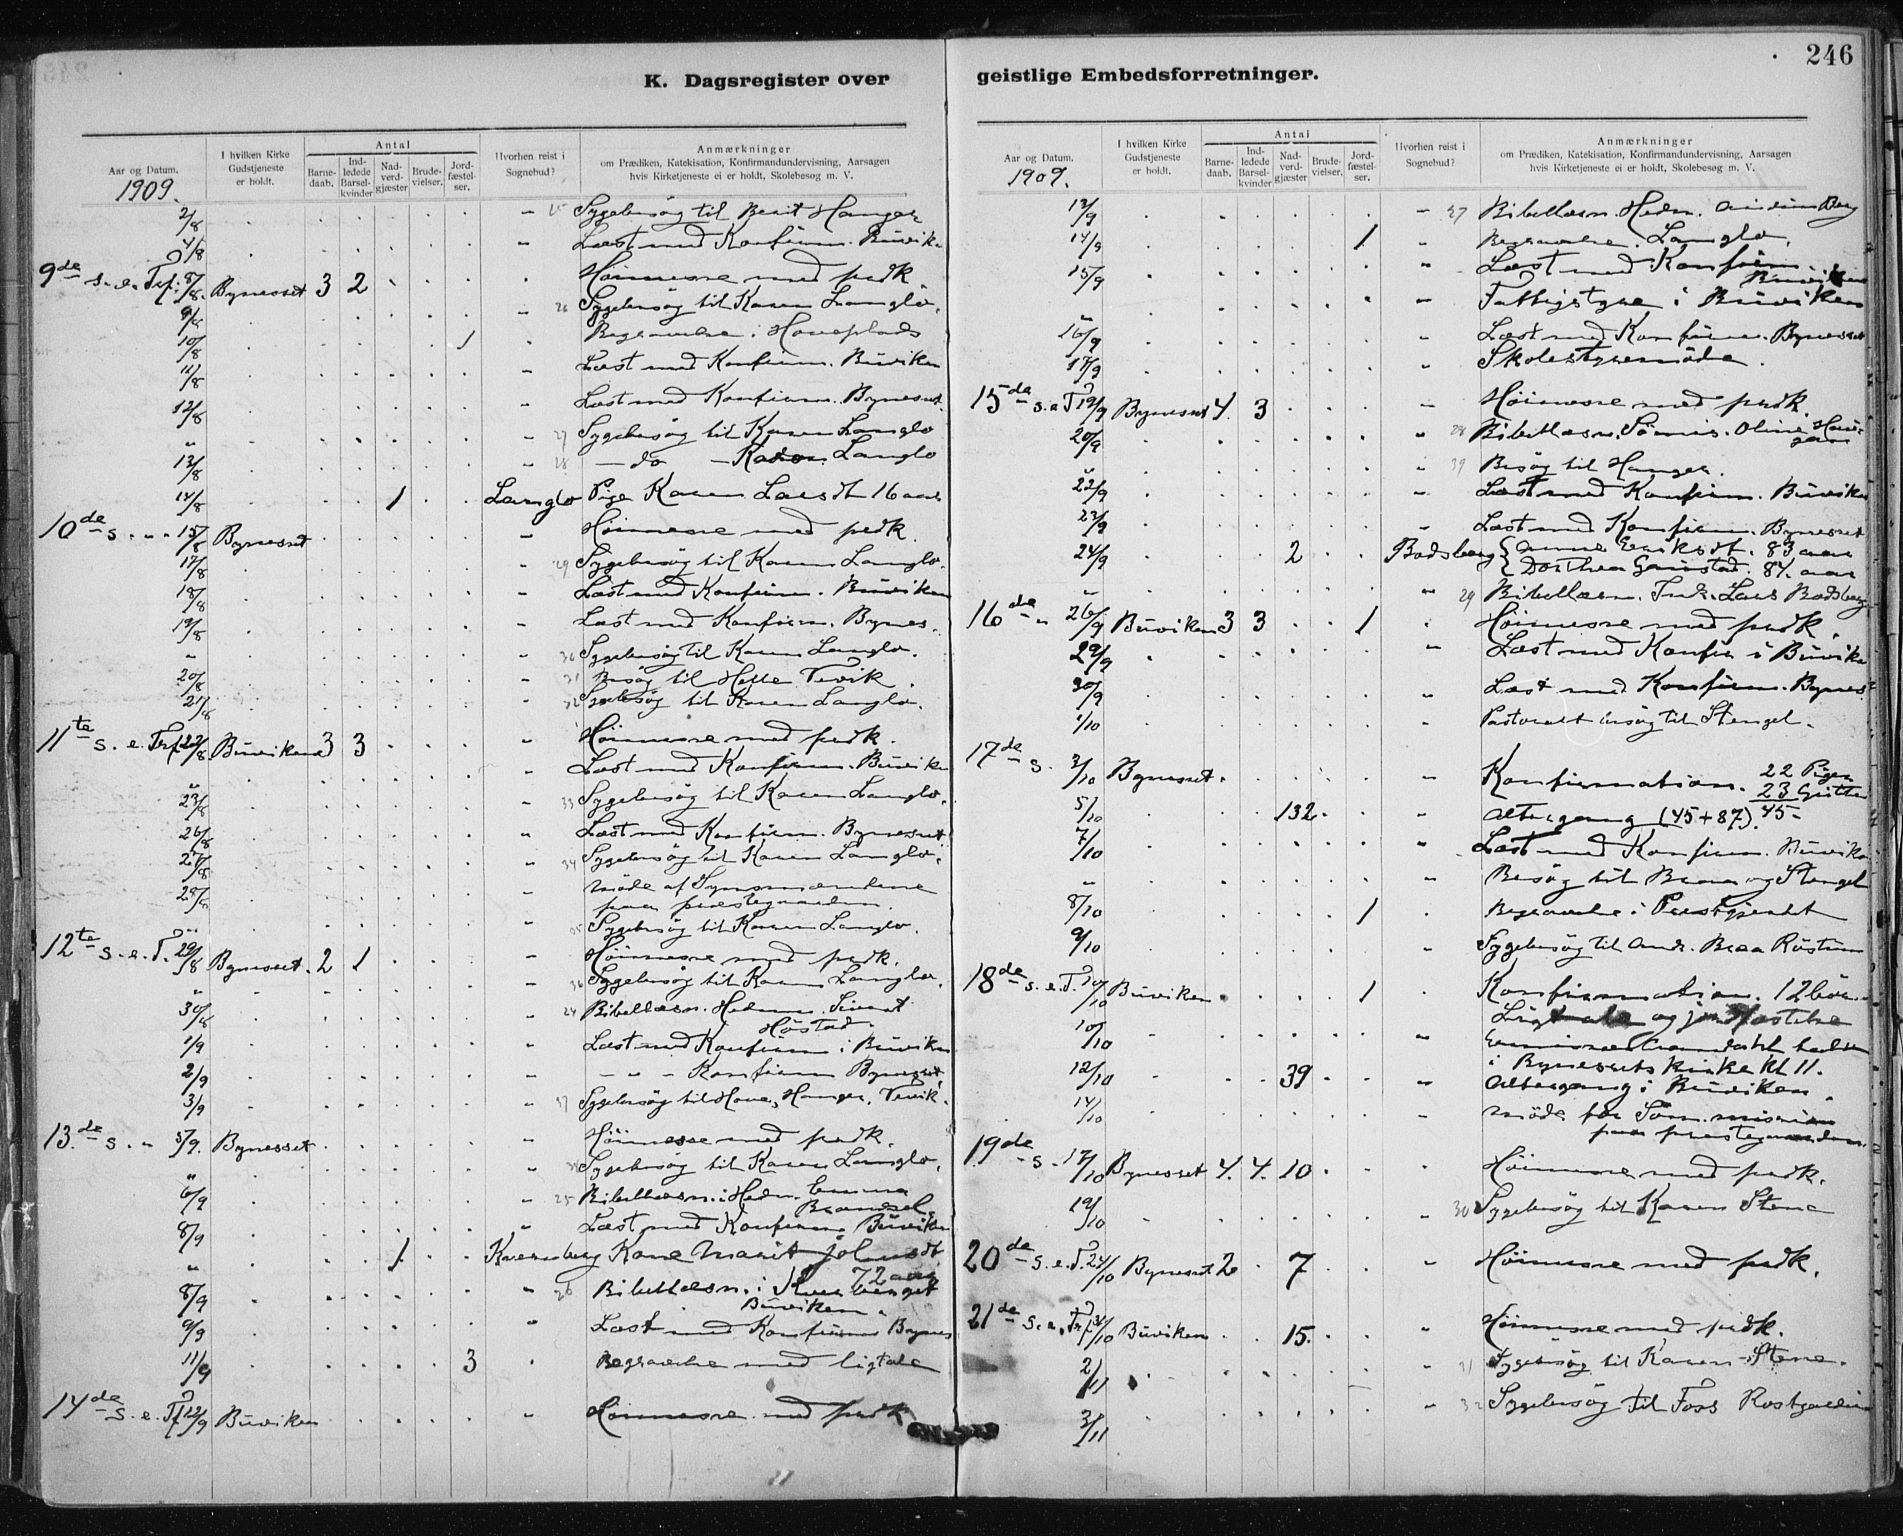 246
K. Dagsregister over geistlige Embedsforretninger.
Aar og Datum.
1909.
I hvilken Kirke Gudstjeneste er holdt.
Antal
Barne-daab.
Ind-ledede Barsel-kvinder
Nad-verd-gjæster
Brude-vielser.
Jord-fæstel-ser.
Hvorhen reist i Sognebud?
Anmærkninger
om Prædiken, Katekisation, Konfirmandundervisning, Aarsagen
hvis Kirketjeneste ei er holdt, Skolebesøg m. V.
2/8 " 25 Sygebesøg til Berit Hanger
4/8 " Læst med Konfirm. Buvik
9de s. e. Trf. 8/8. Bynesset 3 2 Høimesse med prdk
9/8 " 26 Sygebesøg til Karen Langlo.
10/8 1 Begravelse i Hoveplads
11/8 " Læst med Konfirm. Buviken
12/8 " Læst med Konfirm. Bynesset.
" " 27 Sygebesøg til Karen Langlo
13/8 " 28 — do — Karen Langlo
14/8 1 Langlo Pige Karen Larsdt 16 aar
10de s. " " 15/8 Bynesset Høimesse med prdk.
17/8 " 29 Sygebesøg til Karen Langlo.
18/8 " Læst med Konfirm. Buviken
19/8 " Læst med Konfirm. Bynes.
" " 30 Sygebesøg til Karen Langlo.
20/8 " 31 Besøg til Helle Tevik.
21/8 " 32 Sygebesøg til Karen Langlo.
11te s. e. Trf. 22/8. Buviken 3 3 " Høimesse med prdk.
" " Læst med Konfirm. Buvike
23/8 " 33 Sygebesøg til Karen Langlo.
26/8 " Læst med Konfirm. Bynesset
27/8 " 34 Sygebesøg til Karen Langlo.
28/8 " Møde af Synsmændene
paa prestegaarden.
" " 35 Sygebesøg til Karen Langlo.
12te s. e. T. 29/8 Bynesset. 2 1 " Høimesse med prdk.
" " 36 Sygebesøg til Karen Langlo.
30/8 " 24 Bibellæsn. Hedn. Sivert
Høstad.
1/9 " Læst med Konfirm i Buviken
2/9 " — " — Konfirm Bynesset
3/9 " 37 Sygebesøg til Hove, Hanger, Tevik.
13de s. " 5/9. Bynesset " Høimesse med prdk.
" " 38 Sygebesøg til Karen Langlo.
6/9 " 25 Bibellæsn. i Hedn. Emma
8/9 " Læst med Konfirm. Buviken
" 1 Kvernberg Kone Marit Johnsdt
72 aar
8/9 " 26 Bibellæsn. i
Buviken.
9/9 " Læst med Konfirm Bynes
11/9 3 Begravelse med ligtale
14de s. e. Tf. 12/9 Buviken " Høimesse med prdk
Aar og Datum.
1909.
I hvilken Kirke Gudstjeneste er holdt.
Antal
Barne-daab.
Ind-ledede Barsel-kvinder
Nad-verd-gjæster
Brude-vielser.
Jord-fæstel-ser.
Hvorhen reist i Sognebud?
Anmærkninger
om Prædiken, Katekisation, Konfirmandundervisning, Aarsagen
hvis Kirketjeneste ei er holdt, Skolebesøg m. V.
13/9 " 27 Bibellæsn. Hedn. Berg
14/9 1 " Begravelse. Langlo.
15/9 " Læst med Konfirm
Buviken
" " Fattigstyre i Buviken
16/9 " Læst med Konfirm. Bynesset
17/9 " Skolestyremøde.
15de s. e. T. 19/9 Bynesset 4. 3 " Høimesse med prdk.
20/9 " 28 Bibellæsn. Sømis. Oline
" " 39 Besøg til Hanger.
22/9 " Læst med Konfirm. Buviken
23/9 " Læst med Konfirm. Bynesset
24/9 2 Bodsberg { Anne Eriksdt. 83 aar
Dorthea Gaustad. 84. aar
" " 29 Bibellæsn. Indr. Lars Bodsberg
16de " 26/9 Buviken 3 3 1 Høimesse med prdk.
29/9 " Læst med Konfir i Buvike
30/9 " Læst med Konfirm. Bynes
1/10 " Pastoralt besøg til Stengel.
17de s. 3/10 Bynesset. " Konfirmation. 22 Piger
23 Gutter
45
5/10 132 " Altergang (45+87).
7/10 " Læst med Konfirm. Buvike
" " Besøg til Braa og Stengel
8/10 1 Begravelse i Prestgjerdet
9/10 " Sygebesøg til Andr. Braa Rostum
18de s. e. T. 10/10 Buviken 1 Konfirmation. 12 børn
Ligtale og jordfæstelse
10/10 "
i Bynessets kirke kl 11.
12/10 39 " Altergang i Buviken.
14/10 " Møde for Sømmission
paa prestegaarden.
19de s. 17/10 Bynesset 4. 4. 10 Høimesse med prdk.
19/10 " 30 Sygebesøg til Karen Stene
20de s. e. T. 24/10 Bynesset 2 7 " Høimesse med prdk.
21de s. e. Trf. 31/10 Buviken 15. " Høimesse med prdk.
2/11 " 31 Sygebesøg til Karen Stene.
3/11 " 32 Sygebesøg til Foss